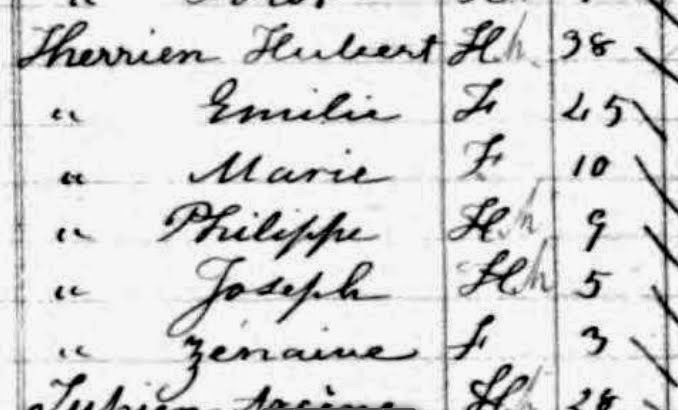 Therrien Hubert H h 38
" Emilie F 45
" Marie F 10
" Philippe H h 9
" Joseph H h 5
" F 3
H 28